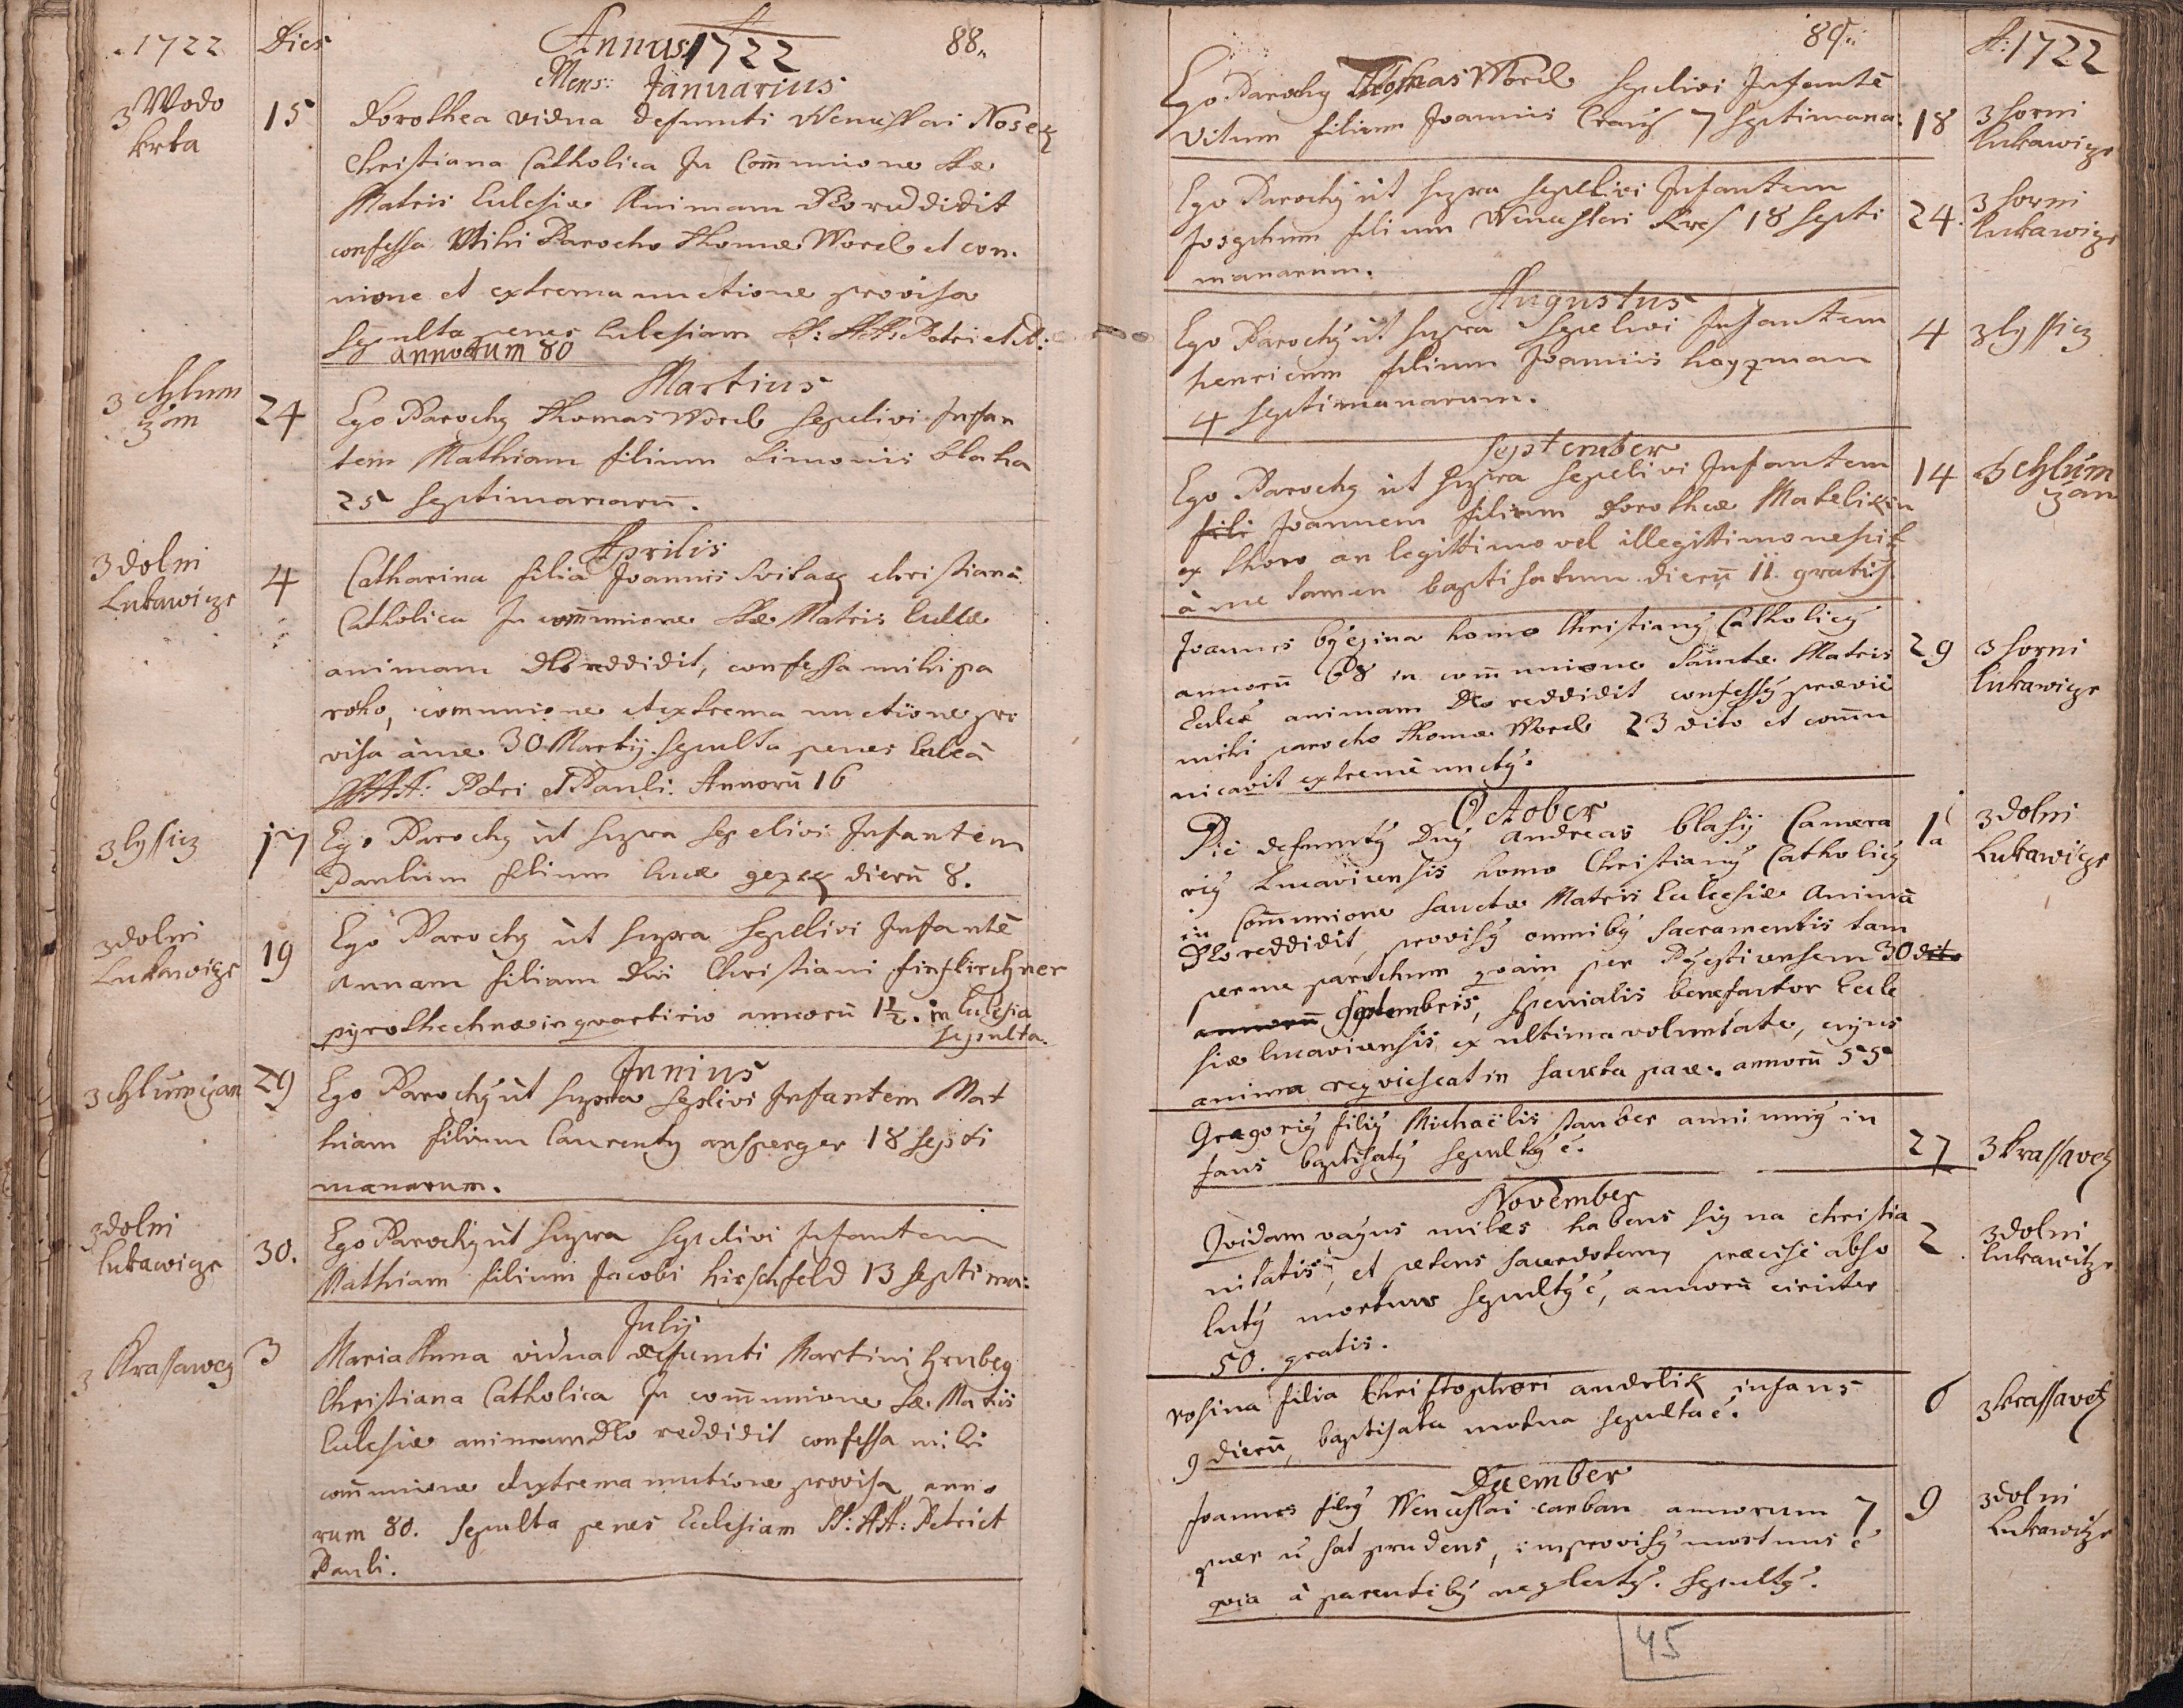 1722 Dies Annus 1722 88.
Mens: Januarius
3 Wodo
krta
15 Dorothea vidua defuncti Wenceslai Nosek
Christiana Catholica In Com̄unione Stae
Matris Ecclesiae Animam Deo reddidit
confessa Mihi Parocho Thomae Worel et com̄
unione et extrema unctione provisa
sepulta penes Ecclesiam SS: AA: Petri et P:
annorum 80
Martius
3 Chlum
zan
24 Ego Parochy Thomas Worel sepelivi Infan
tem Mathiam filium Simonis blaha
25 septimanarū.
Aprilis
3 dolni
Lukawicze
4 Catharina filia Joannis Svitak christiana
Catholica In com̄unione Stae Matris Ecclae
animam Deo reddidit, confessa mihi pa
rocho, comunione et extrema unctione pro
visa à me 30 Martij sepulta penes Eccleā
SS: AA: Petri et Pauli. Annorū 16
3 lyssicz
17 Ego Parochy ùt supra sepelivi Infantem
Paulum filium Lucae gezek dierū 8.
3 dolni
Lukawicze
19 Ego Parochy ùt supra sepelivi Infantē
Annam filiam Dni Christiani finfkirchner
pyrothechnae in quartirio annorū 1½. in Eclesia
sepulta.
Junius
3 chlumczan
29 Ego Parochy ùt supra sepelivi Infantem Mat
hiam filium Laurenty ansperger 18 septi
manarum.
3 dolni
lukawicze
30. Ego Parochy ùt supra sepelivi Infantem
Mathiam filium Jacobi hirschfeld 13 septima:
Julij
3 Krassawcz
3 Maria Anna vidua defuncti Martini hrubeg
Christiana Catholica In com̄unione Sae Matris
Eclesiae animam Deo reddidit confessa mihi
com̄unione et extrema unctione provisa, anno
rum 80. sepulta penes Ecclesiam SS: AA: Petri et
Pauli.
89. A: 1722
Ego Parochy Thomas Worel sepelivi Infantē
Vitum filium Joannis 7 septimana:
18 3 horni
Lukawicze
Ego Parochy ut supra sepelivi Infantem
Josephum filium Wenceslai Kres 18 septi
manarum.
24. 3 horni
lukawicze
Augustus
Ego Parochy ùt supra sepelivi Infantem
henricum filium Joannis hoyzman
4 septimanarum.
4 3 lyssicz
September
Ego Parochy ut supra sepelivi Infantem
fili Joannem filium Dorotheae
ex thoro an legittimo vel illegittimo nescit
à me tamen baptisatum dierū 11. gratis.
14 3 chlum
zan
Joannes březina homo Christiany Catholicy
annorū 68 in com̄unione Sanctae Matris
Eclae animam Deo reddidit confessy praevie
mihi parocho Thomae Worel 23 dito et com̄u
nicavit extreme uncty.
29 3 horni
Lukawicze
October
Pie defuncty Dny Andreas blasy Camera
riy Lucavicensis homo Christiany Catholicy
in Com̄unione sanctae Matris Ecclesiae Animā
Deo reddidit, provisy omniby sacramentis tam
per me parochum quam per 30 dito
annorū septembris, specialis benefactor Eccle
siae lucaviensis, ex ultima voluntate, cujus
anima requiescat in sancta pace. annorū 55
1a 3 dolni
Lukawicze
Gregoriy filiy Michaëlis tauber anni uniy in
fans baptisaty sepulty ē.
27 3 Krassavetz
November
Quidam vagus miles habens signa christia
nitatis, et petens sacerdotem, praecise abso
luty mortuus sepulty ē, annorū circiter
50. gratis.
2 3 dolni
lukawitze
rosina filia Christophori andrlik infans
9 dierū, baptisata mortua sepulta ē.
6 3 krassavetz
December
Joannes filiy Wenceslai carban annorum 7
puer ū sat prudens, improvisy mortuus ē
quia à parentiby neglecty. sepulty.
9 3 dolni
Lukawitze
45